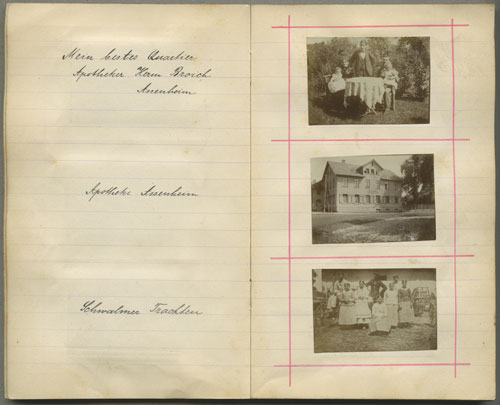 Mein bestes Quartier
Apotheker Herm Broich
Assenheim
Apotheke Assenheim
Schwalmer Trachten